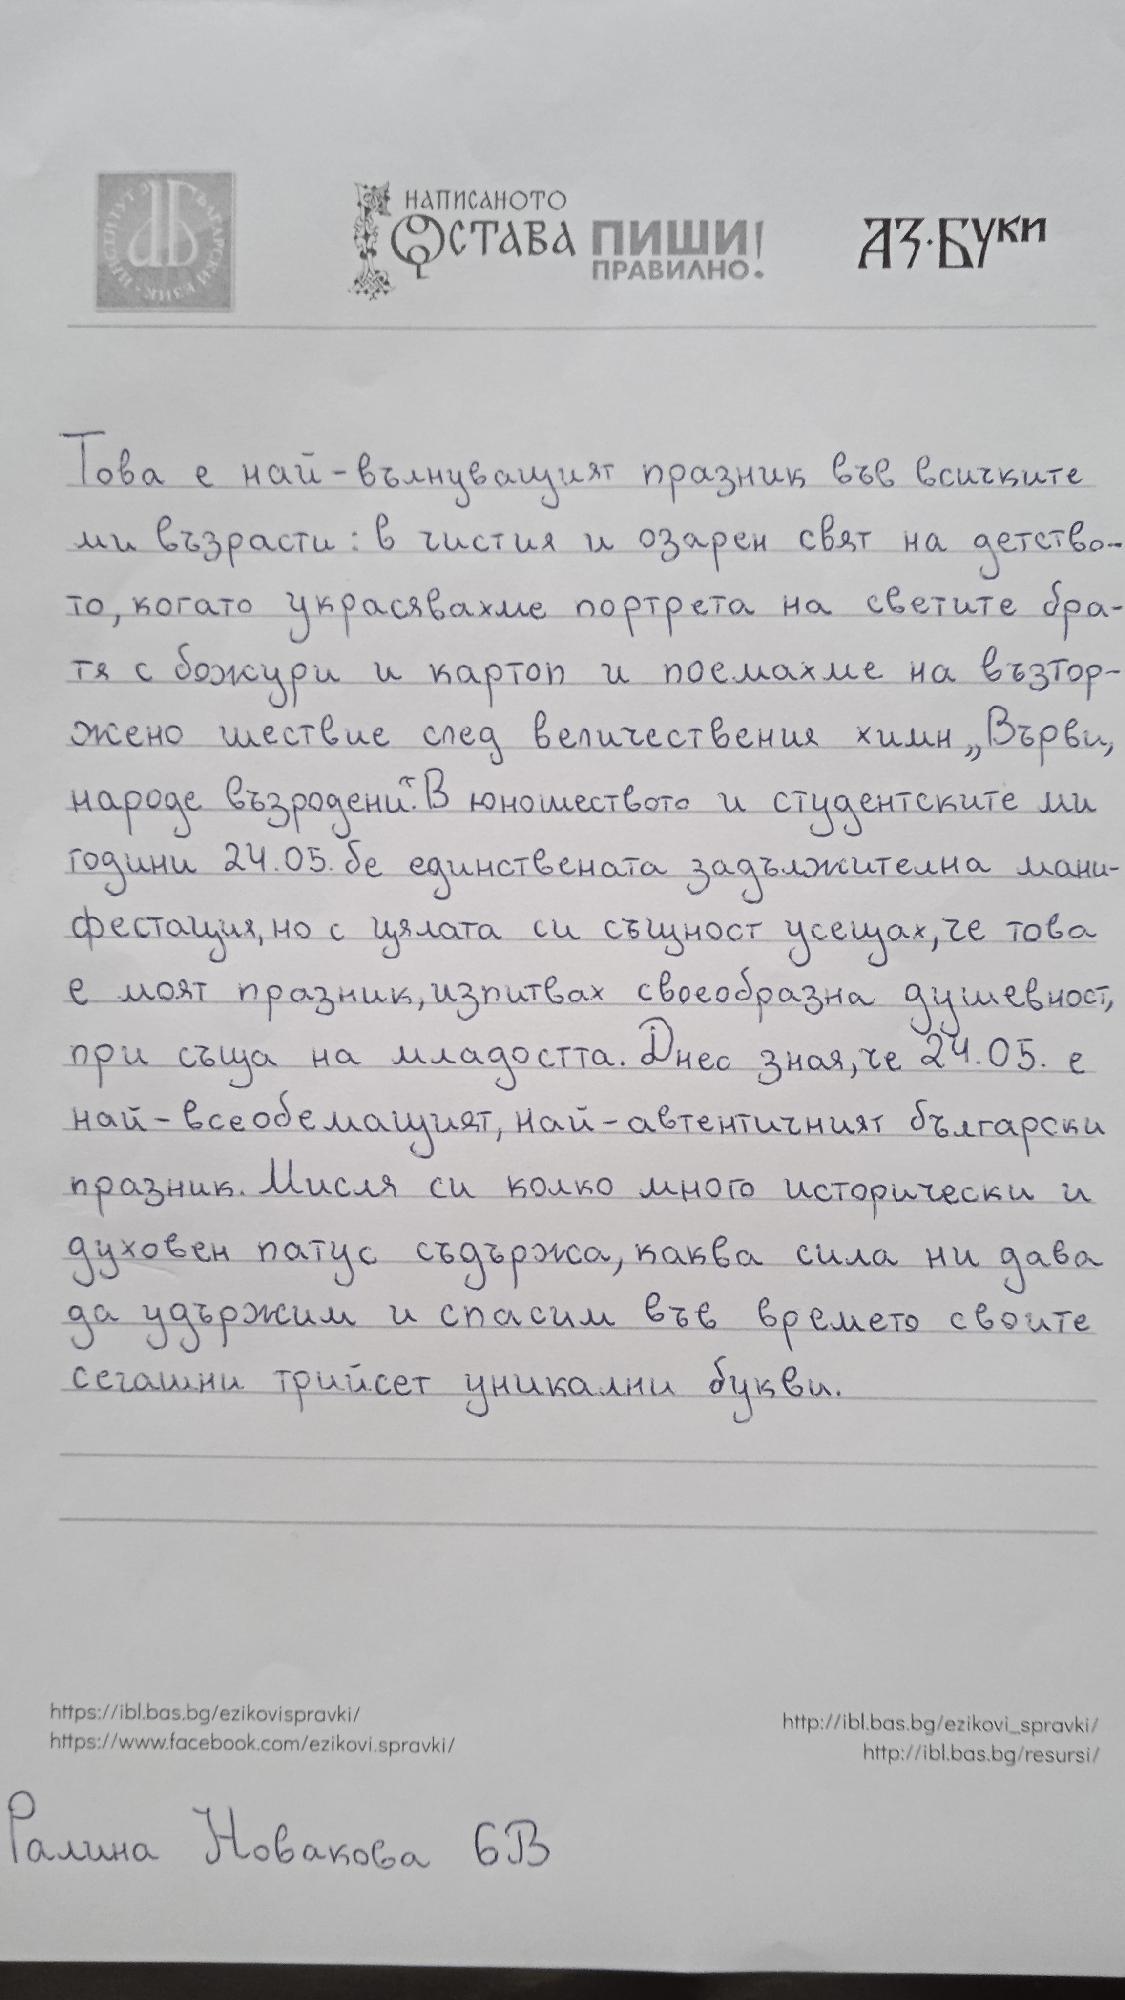 ИНСТИТУТ ЗА БЪЛГАРСКИ ЕЗИК
НАПИСАНОТО
ОСТАВА
ПИШИ
ПРАВИЛНО!
АЗ·БУКИ
Това е най-вълнуващият празник във всичките
ми възрасти: в чистия и озарен свят на детство-
то, когато украсявахме портрета на светите бра-
тя с божури и картоп и поемахме на възтор-
жено шествие след величествения химн „Върви,
народе възродени“. В юношеството и студентските ми
години 24.05. бе единствената задължителна мани-
фестация, но с цялата си същност усещах, че това
е моят празник, изпитвах своеобразна душевност,
при съща на младостта. Днес зная, че 24.05. е
най-всеобемащият, най-автентичният български
празник. Мисля си колко много исторически и
духовен патус съдържа, каква сила ни дава
да удържим и спасим във времето своите
сегашни трийсет уникални букви.
https://ibl.bas.bg/ezikovispravki/
https://www.facebook.com/ezikovi.spravki/
http://ibl.bas.bg/ezikovi_spravki/
http://ibl.bas.bg/resursi/
Ралина Новакова 6В